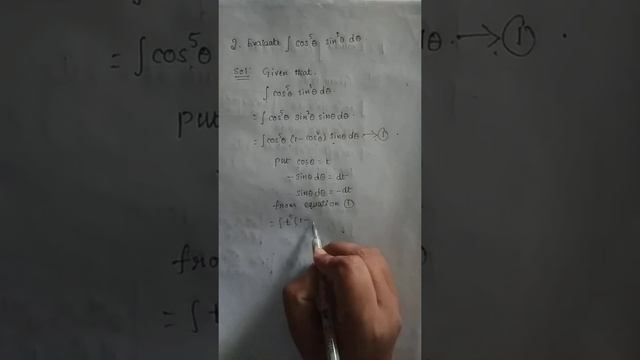 2. Evaluate ∫ cos⁵θ sin³θ dθ.
Sol: Given that.
∫ cos⁵θ sin³θ dθ
= ∫ cos⁵θ sin²θ sinθ dθ.
= ∫ cos⁵θ (1-cos²θ) sinθ dθ → ①.
put cosθ = t
-sinθ dθ = dt
sinθ dθ = -dt
from equation ①
= ∫ t⁵ (1-